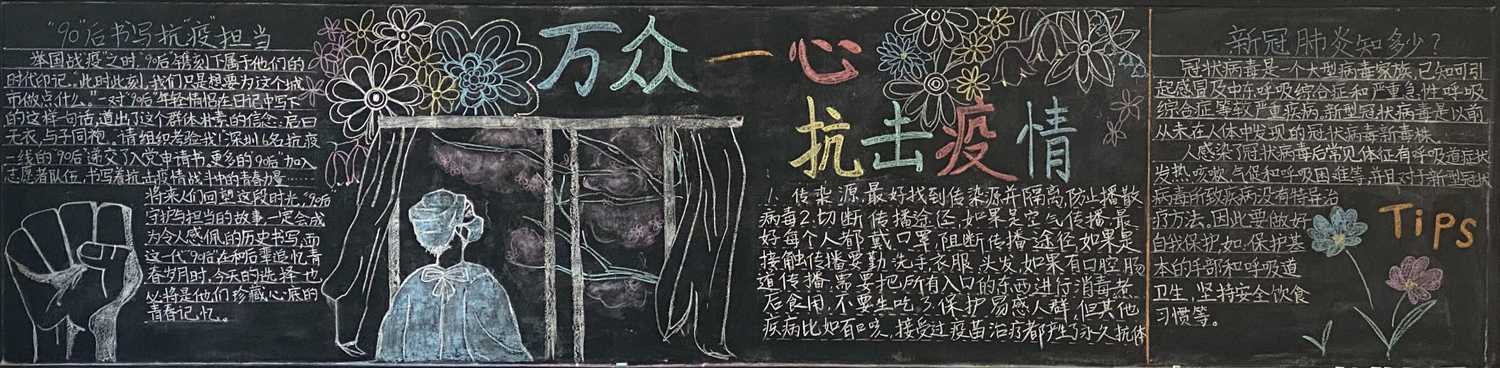 "90"后书写抗"疫"担当
举国战"疫"之时,"90"后镌刻下属于他们的
时代印记。"此时此刻,我们只是想要为这个城
市做点什么。"一对"90后"年轻情侣在日记中写下
的这样一句话,道出了这个群体朴素的信念。岂曰
无衣,与子同袍。"请组织考验我!"深圳6名抗疫
一线的"90后"递交了入党申请书,更多的"90后"加入
志愿者队伍,书写着抗击疫情战斗中的青春力量……
将来人们回望这段时光,"90后"
守护与担当的故事,一定会成
为令人感佩的历史书写,而
这一代"90后"在和后辈追忆青
春岁月时,今天的选择也
必将是他们珍藏心底的
青春记忆。
万众一心
抗击疫情
1、传染源,最好找到传染源并隔离,防止播散
病毒2.切断传播途径,如果是空气传播,最
好每个人都戴口罩,阻断传播途径,如果是
接触传播要勤洗手、衣服、头发,如果有口腔肠
道传播,需要把所有入口的东西进行消毒煮
后食用,不要生吃了保护易感人群,但其他
疾病比如百日咳,接受过疫苗治疗都产生了永久抗体
新冠肺炎知多少?
冠状病毒是一个大型病毒家族,已知可引
起感冒及中东呼吸综合症和严重急性呼吸
综合症等较严重疾病,新型冠状病毒是以前
从未在人体中发现的冠状病毒新毒株。
人感染了冠状病毒后常见体征有呼吸道症状
发热、咳嗽、气促和呼吸困难等,并且对于新型冠状
病毒所致疾病没有特异治
疗方法。因此要做好
自我保护,如:保护基
本的手部和呼吸道
卫生,坚持安全饮食
习惯等。
Tips